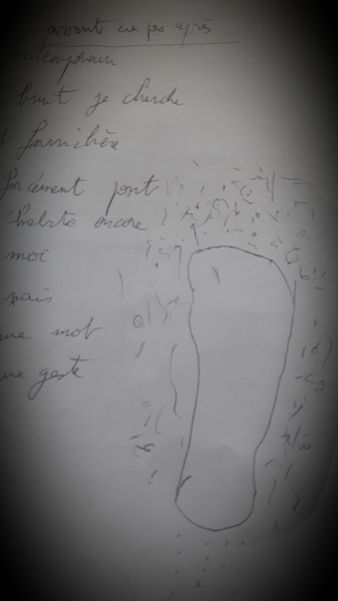 avant un pas après
contemporain
bruit je cherche
familière
forcément point
habite encore
moi
pais
mot
geste